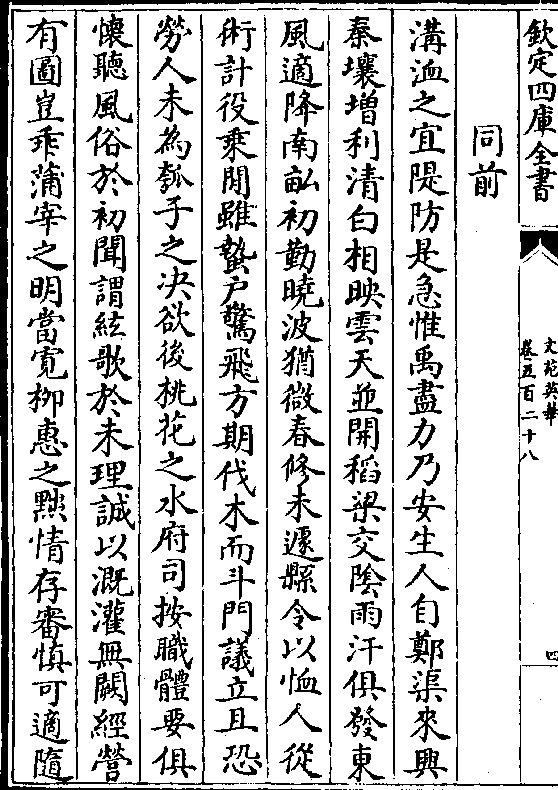 欽定四庫全書
文苑英華
卷五百二十八
四
同前
溝洫之宜隄防是急惟禹盡力乃安生人自鄭渠來興
秦壤增利清白相映雲天並開稻梁交陰雨汗俱發東
風適降南畝初勤曉波猶微春修未遽縣令以恤人從
術計役乘閒雖蟄户驚飛方期伐木而斗門議立且恐
勞人未為瓠子之决欲後桃花之水府司按職體要俱
懷聽風俗於初聞謂絃歌於未理誠以溉灌無闕經營
有圖豈乖蒲宰之明當寛栁惠之㸃情存審慎可適隨